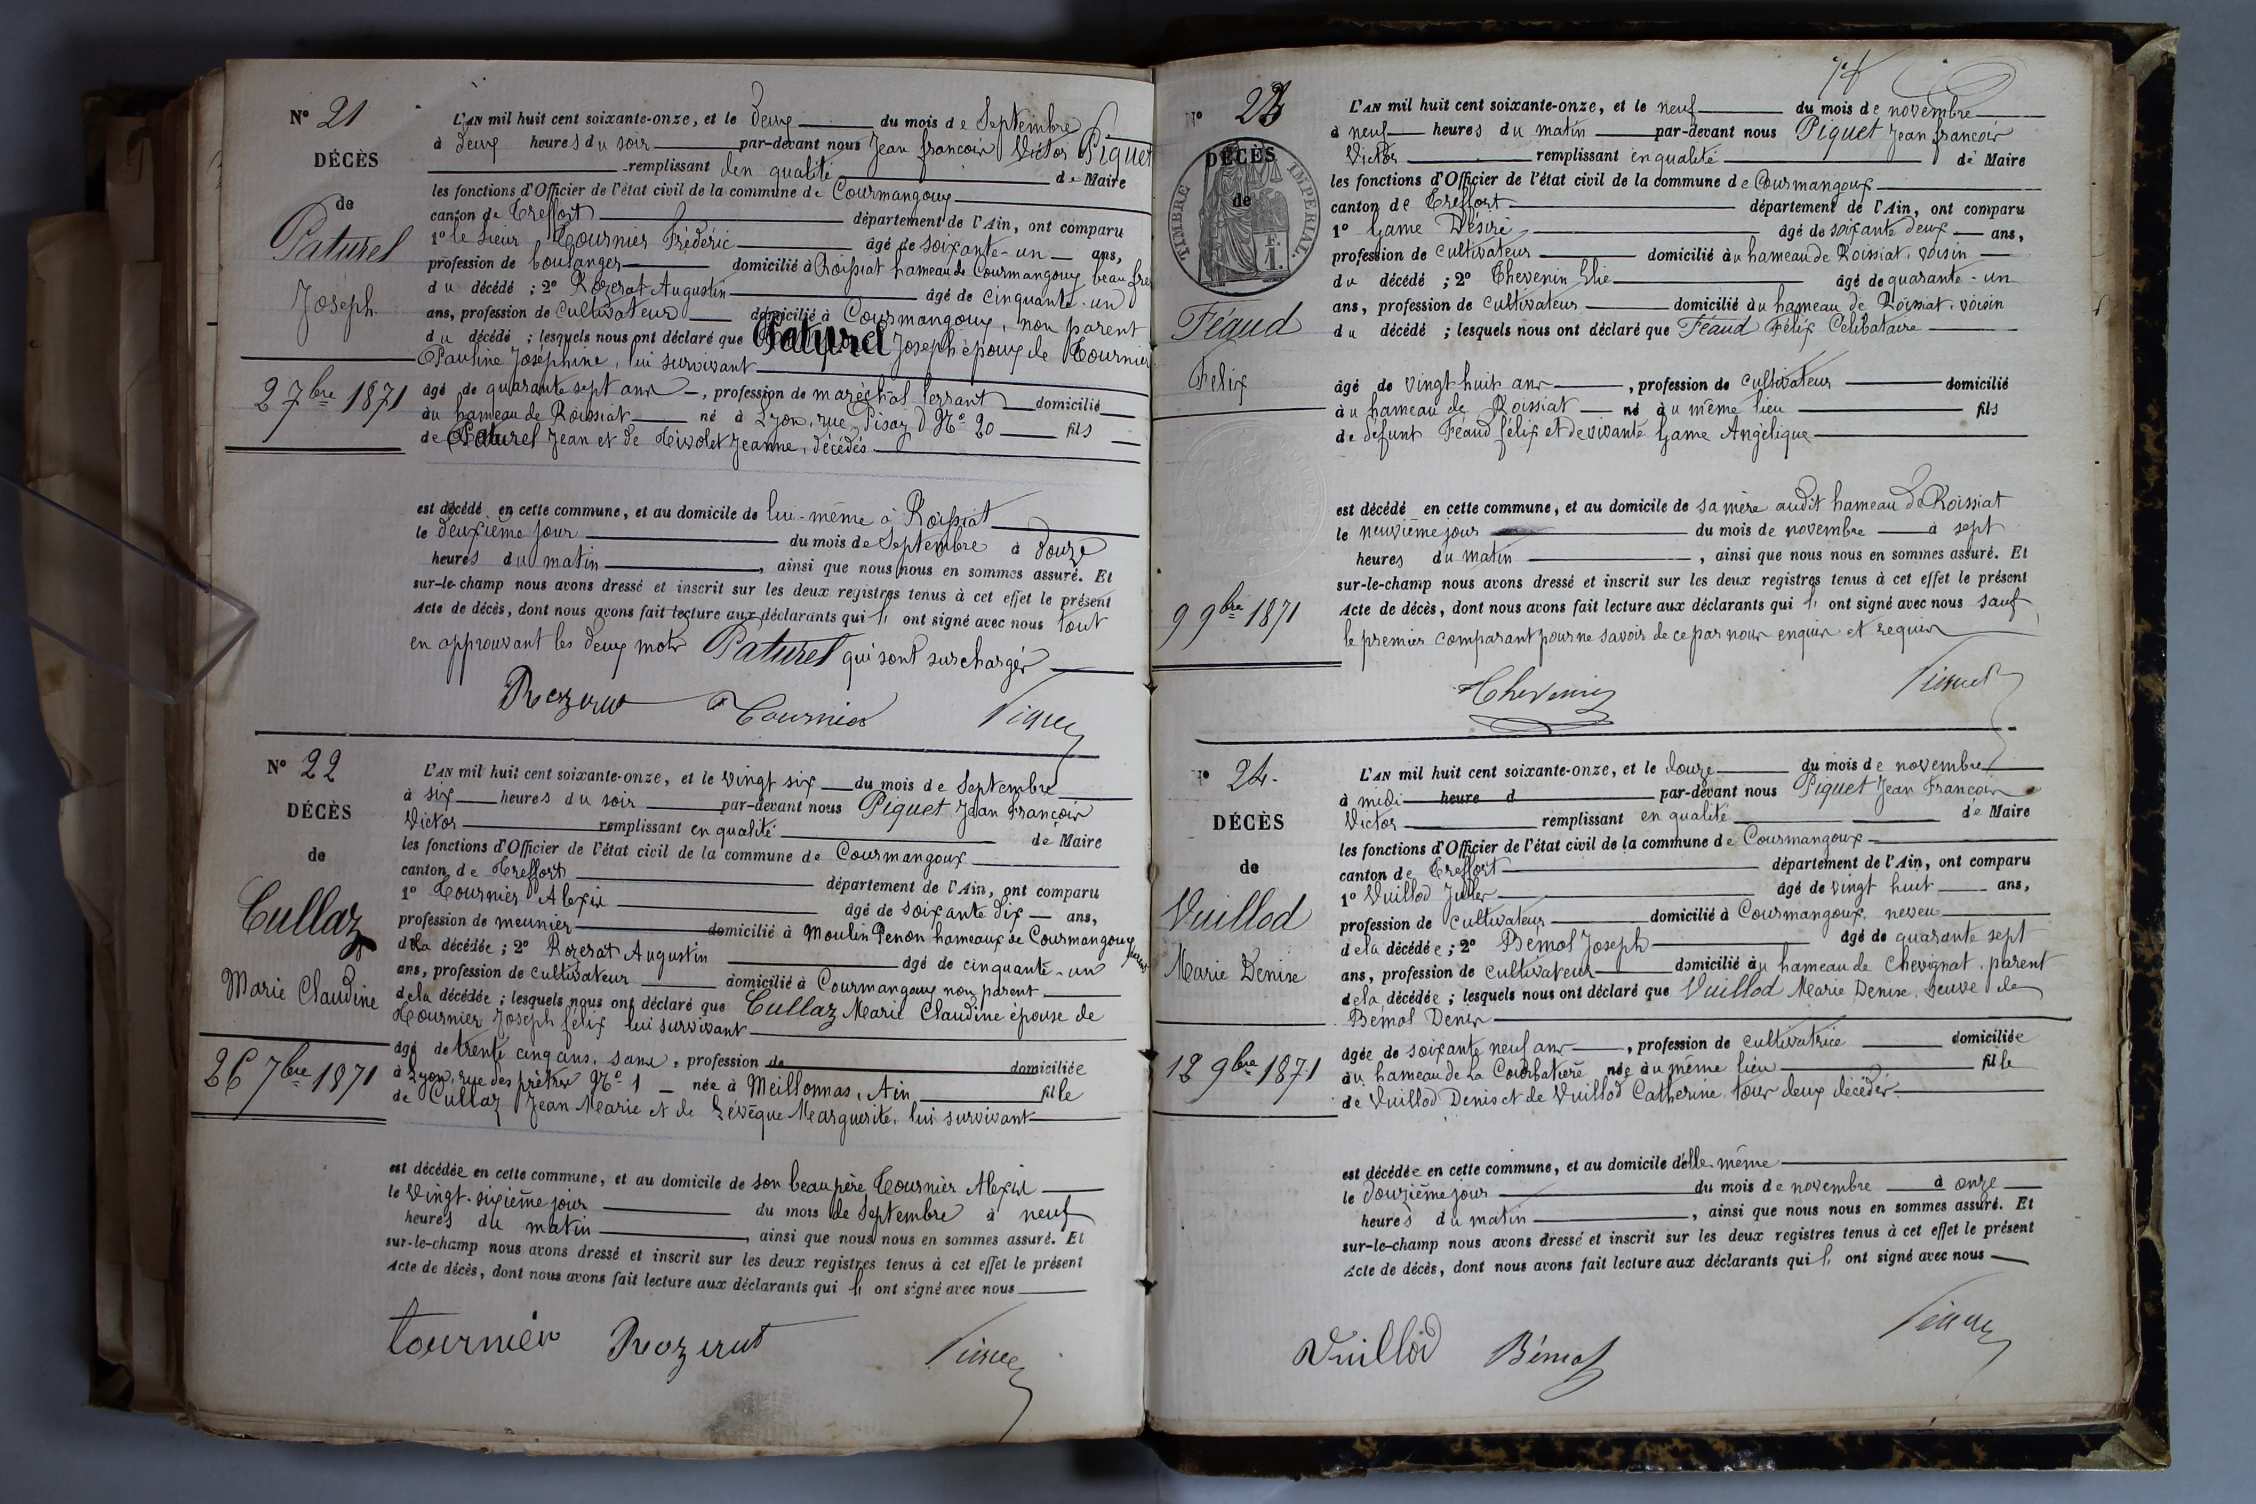 N° 21
DÉCÈS
de
Paturel
Joseph
2 7bre 1871
L'AN mil huit cent soixante-onze, et le deux du mois de Septembre
à deux heures du soir par-devant nous Jean francois Victor Piquet
remplissant en qualité de Maire
les fonctions d'Officier de l'état civil de la commune de Courmangoux
canton de Treffort département de l'Ain, ont comparu
1° le sieur Tournier Frédéric âgé de soixante-un ans,
profession de boulanger domicilié à Roissiat hameau de Courmangoux beau frère
du décédé ; 2° Rozerat Augustin âgé de cinquante-un
ans, profession de Cultivateur domicilié à Courmangoux, non parent
du décédé ; lesquels nous ont déclaré que Paturel Joseph époux de Tournier
Pauline Josephine, lui survivant
âgé de quarante sept ans, profession de maréchal ferrant domicilié
au hameau de Roissiat né à Lyon, rue Pisay N° 20 fils
de Paturel Jean et de Nivolet Jeanne, décédés
est décédé en cette commune, et au domicile de lui-même à Roissiat
le deuxième jour du mois de Septembre à douze
heures du matin, ainsi que nous nous en sommes assuré. Et
sur-le-champ nous avons dressé et inscrit sur les deux registres tenus à cet effet le présent
Acte de décès, dont nous avons fait lecture aux déclarants qui l' ont signé avec nous tout
en approuvant les deux mots Paturel qui sont surchargés
Rozerat Tournier Piquet
N° 22
DÉCÈS
de
Cullaz
Marie Claudine
26 7bre 1871
L'AN mil huit cent soixante-onze, et le vingt six du mois de Septembre
à six heures du soir par-devant nous Piquet Jean Francois
Victor remplissant en qualité de Maire
les fonctions d'Officier de l'état civil de la commune de Courmangoux
canton de Treffort département de l'Ain, ont comparu
1° Tournier Alexis âgé de soixante dix ans,
profession de meunier domicilié à Moulin Penon hameaux de Courmangoux
de la décédée ; 2° Rozerat Augustin âgé de cinquante-un
ans, profession de cultivateur domicilié à Courmangoux non parent
de la décédée ; lesquels nous ont déclaré que Cullaz Marie Claudine épouse de
Tournier Joseph félix lui survivant
âgé de trente cinq ans, sans, profession de domiciliée
à Lyon, rue des prêtres N° 1 née à Meillonnas, Ain fille
de Cullaz Jean Marie et de Lévêque Marguerite, lui survivant
est décédée en cette commune, et au domicile de son beau père Tournier Alexis
le vingt-sixième jour du mois de Septembre à neuf
heures du matin, ainsi que nous nous en sommes assuré. Et
sur-le-champ nous avons dressé et inscrit sur les deux registres tenus à cet effet le présent
Acte de décès, dont nous avons fait lecture aux déclarants qui l' ont signé avec nous
tournier Rozerat Piquet
N° 23
TIMBRE IMPERIAL
DÉCÈS
de
Féaud
Félix
9 9bre 1871
L'AN mil huit cent soixante-onze, et le neuf du mois de novembre
à neuf heures du matin par-devant nous Piquet Jean francois
Victor remplissant en qualité de Maire
les fonctions d'Officier de l'état civil de la commune de Courmangoux
canton de Treffort département de l'Ain, ont comparu
1° Game Désiré âgé de soixante deux ans,
profession de cultivateur domicilié au hameau de Roissiat, voisin
du décédé ; 2° Thevenin Elie âgé de quarante-un
ans, profession de cultivateur domicilié au hameau de Roissiat, voisin
du décédé ; lesquels nous ont déclaré que Féaud Félix Célibataire
âgé de vingt huit ans, profession de cultivateur domicilié
au hameau de Roissiat né au même lieu fils
de défunt Féaud félix et de vivante Game Angélique
est décédé en cette commune, et au domicile de sa mère audit hameau de Roissiat
le neuvième jour du mois de novembre à sept
heures du matin, ainsi que nous nous en sommes assuré. Et
sur-le-champ nous avons dressé et inscrit sur les deux registres tenus à cet effet le présent
Acte de décès, dont nous avons fait lecture aux déclarants qui l' ont signé avec nous sauf
le premier comparant pour ne savoir de ce par nous enquis et requis
Thevenin Piquet
N° 24.
DÉCÈS
de
Vuillod
Marie Denise
12 9bre 1871
L'AN mil huit cent soixante-onze, et le douze du mois de novembre
à midi heure d par-devant nous Piquet Jean Francois
Victor remplissant en qualité de Maire
les fonctions d'Officier de l'état civil de la commune de Courmangoux
canton de Treffort département de l'Ain, ont comparu
1° Vuillod Jules âgé de vingt huit ans,
profession de cultivateur domicilié à Courmangoux, neveu
de la décédée ; 2° Bémol Joseph âgé de quarante sept
ans, profession de cultivateur domicilié au hameau de Chevignat, parent
de la décédée ; lesquels nous ont déclaré que Vuillod Marie Denise, veuve de
Bémol Denis
âgée de soixante neuf ans, profession de cultivatrice domiciliée
au hameau de La Courbatière née au même lieu fille
de Vuillod Denis et de Vuillod Catherine, tous deux décédés
est décédée en cette commune, et au domicile d'elle-même
le douzième jour du mois de novembre à onze
heures du matin, ainsi que nous nous en sommes assuré. Et
sur-le-champ nous avons dressé et inscrit sur les deux registres tenus à cet effet le présent
Acte de décès, dont nous avons fait lecture aux déclarants qui l' ont signé avec nous
Vuillod Bémol Piquet